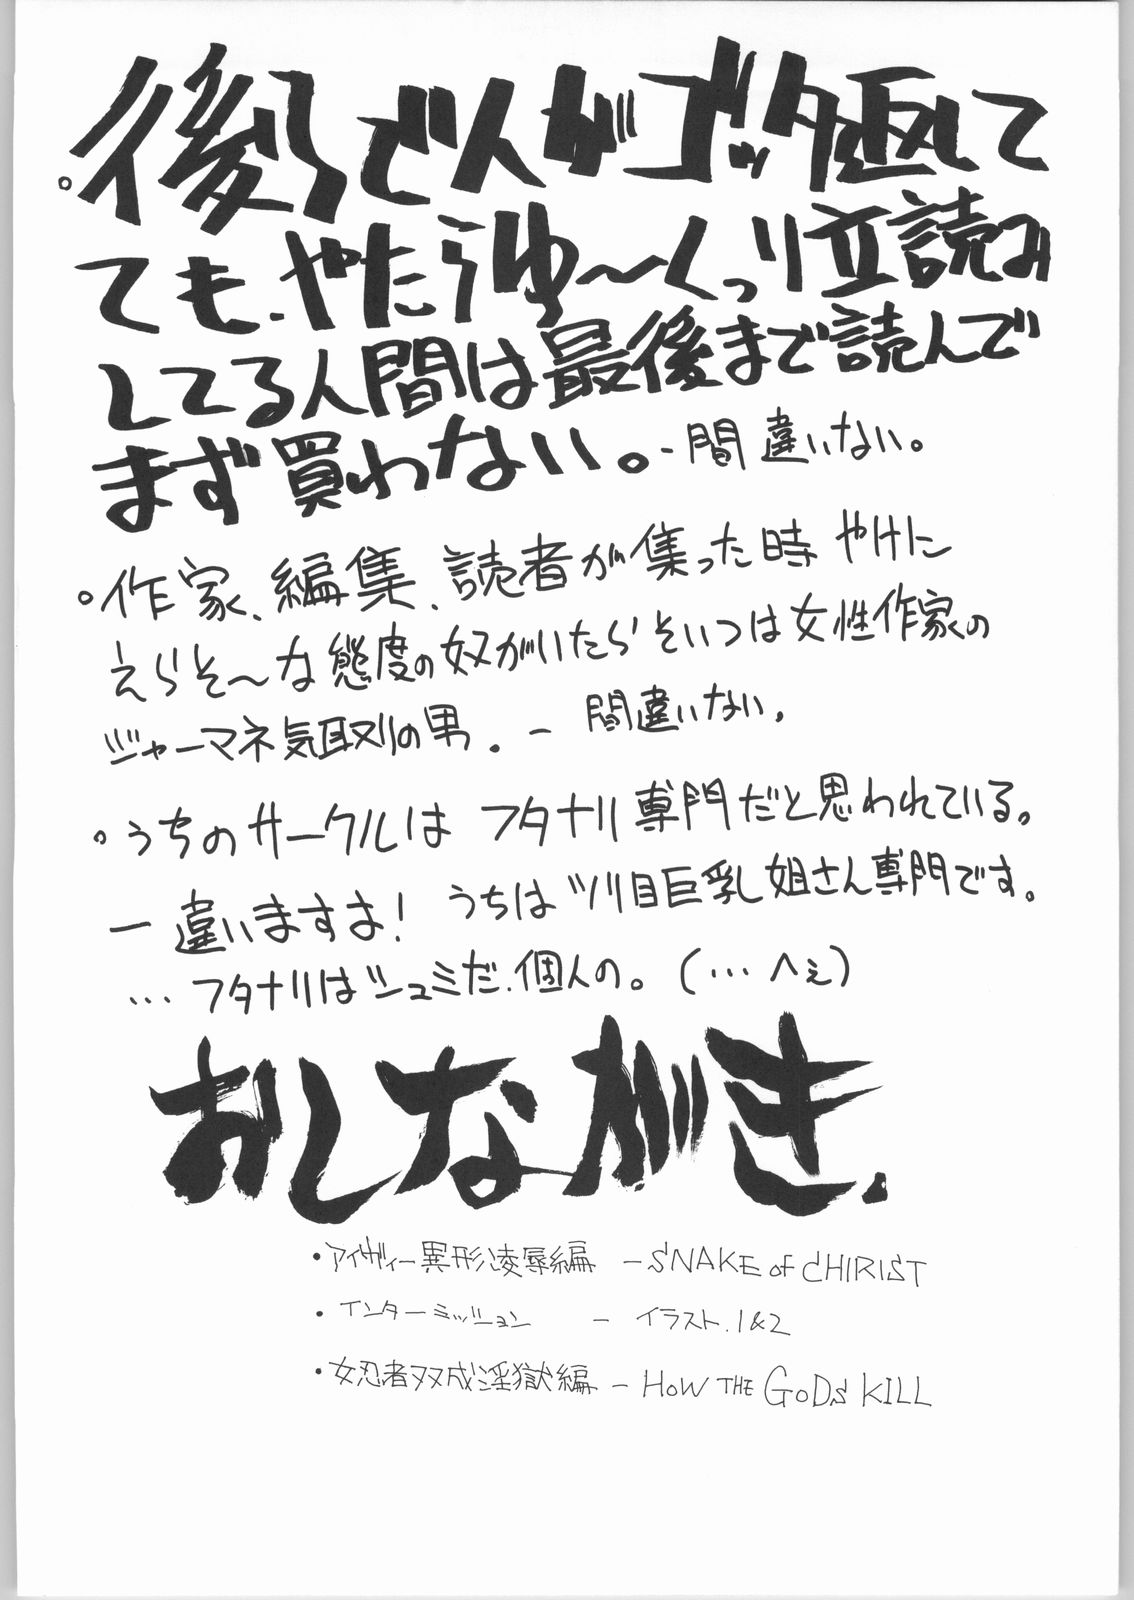 。後ろで人がゴッタ返して
ても、やたらゆ〜くっり立読み
してる人間は最後まで読んで
まず買わない。- 間違いない。
。作家、編集、読者が集った時 やけに
えらそ〜な態度の奴がいたら そいつは女性作家の
ジャーマネ気取りの男。- 間違いない。
。うちのサークルは フタナリ専門だと思われている。
ー違いますよ! うちはツリ目巨乳姐さん専門です。
…フタナリはシュミだ、個人の。(…へぇ)
おしながき.
・アイヴィー異形凌辱編 – SNAKE of CHIRIST
・インターミッション – イラスト.1&2
・女忍者双成淫獄編 – HOW THE GODS KILL